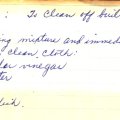 : To Clean off built
ing mixture and immedi
clean cloth:
dar vinegar
ter